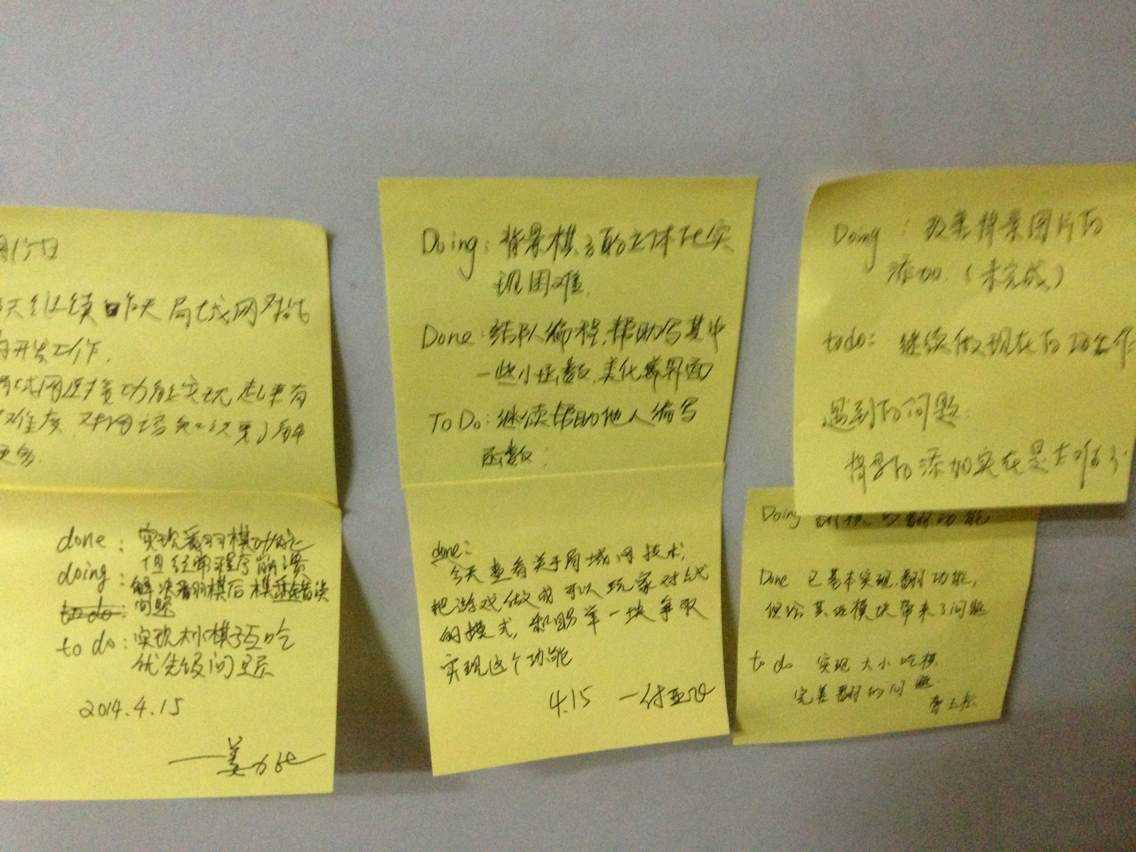 天继续昨天局域网对战
开发工作.
网连接功能实现起来有
难度
done: 实现翻棋功能
但经常程序崩溃
doing: 解决翻棋后棋子错误
to do: 问题
to do: 实现大小棋子互吃
优先级问题
2014.4.15
Doing: 背景棋子的立体化实
现困难.
Done: 结队编程,帮助写其中
一些小函数,美化界面
To Do: 继续帮助他人编写
函数.
done:
今天查看关于局域网技术,
把游戏做成可以玩家对战
的模式, 一块争取
实现这个功能
4.15 一付
Doing: 改善背景图片的
添加.(未完成)
todo: 继续做现在的工作
遇到的问题:
背景的添加实在是太难了
Doing 翻功能
Done 已基本实现翻功能,
但给其他模块带来了问题
to do 实现大小吃棋
完善翻的问题